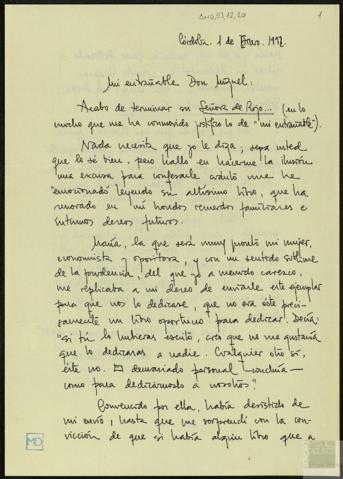 AMD, 53, 12, 20
1
Córdoba, 1 de Enero. 1992.
Mi entrañable Don Miguel:
Acabo de terminar su Señora de Rojo... (en lo
mucho que me ha conmovido justifico lo de "mi entrañable").
Nada necesita que yo le diga; sepa usted
que lo sé bien, pero hallo en hacerme la ilusión
una excusa para confesarle cuánto me he
emocionado leyendo su altísimo libro, que ha
morado en mi hondos recuerdos familiares e
íntimos deseos futuros.
María, la que será muy pronto mi mujer,
economista y opositora, y con un sentido sublime
de la prudencia, del que yo a menudo carezco,
me replicaba a mi deseo de enviarle este ejemplar
para que nos lo dedicase, que no era éste preci-
samente un libro oportuno para dedicar. Decía:
"si tú lo hubieras escrito, creo que no me gustaría
que lo dedicaras a nadie. Cualquier otro sí,
éste no. Es demasiado personal –concluía–
como para dedicárnoslo a nosotros".
Convencido por ella, había desistido de
mi envío, hasta que me sorprendí con la con-
vicción de que si había algún libro que a
MD